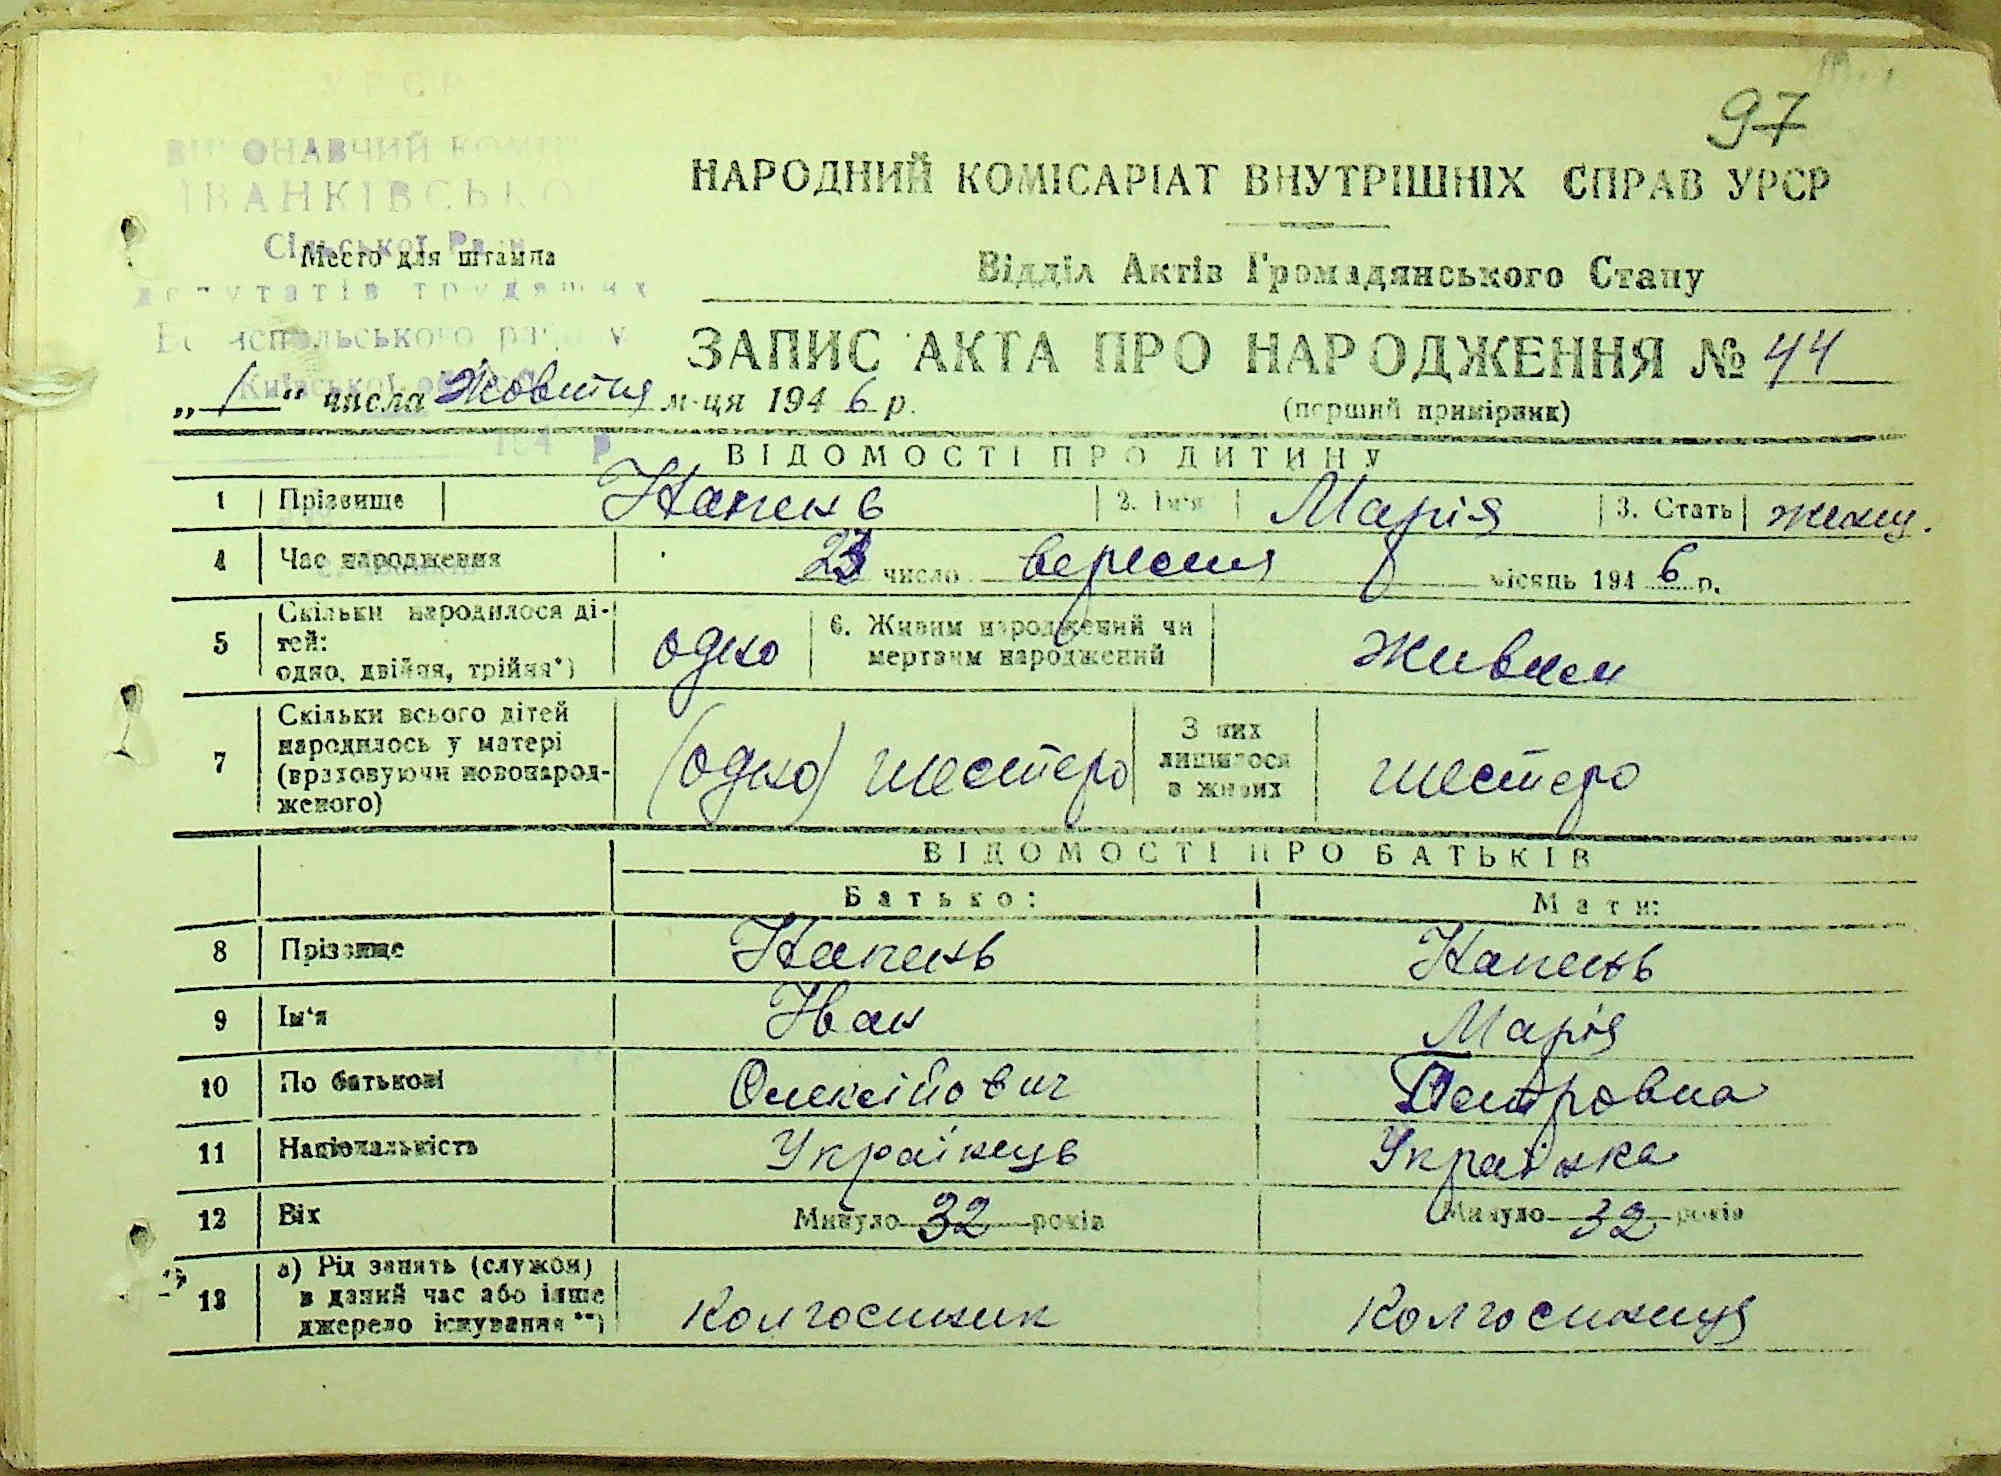 97
УРСР
ВИКОНАВЧИЙ КОМІ
ІВАНКІВСЬКО
Сільської Ради
депутатів трудящих
Бориспільського району
Київської обл
194 р
Место для штампа
НАРОДНИЙ КОМІСАРІАТ ВНУТРІШНІХ СПРАВ УРСР
Відділ Актів Громадянського Стану
ЗАПИС АКТА ПРО НАРОДЖЕННЯ № 44
„ 1 “ числа Жовтня м-ця 1946 р.
(перший примірник)
ВІДОМОСТІ ПРО ДИТИНУ
1 Прізвище Капень 2. Ім'я Марія 3. Стать жіноч.
4 Час народження 23 число вересня місяць 1946 р.
5 Скільки народилося ді-
тей:
одно, двійня, трійня*)
одно
6. Живим народжений чи
мертвим народжений
живим
7 Скільки всього дітей
народилось у матері
(враховуючи новонарод-
женого)
(одно) шестеро
З них
лишилося
в живих
шестеро
ВІДОМОСТІ ПРО БАТЬКІВ
Батько: Мати:
8 Прізвище Капень Капень
9 Ім'я Іван Марія
10 По батькові Олексійович Петровна
11 Національність Українець Українка
12 Вік Минуло 32 років Минуло 32 років
13 а) Рід занять (служби)
в даний час або інше
джерело існування **)
Колгоспник Колгоспниця